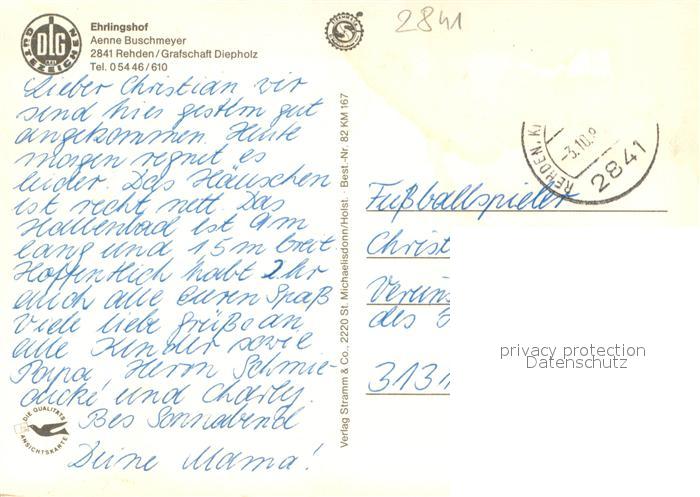 DLG
GÜTEZEICHEN
Ehrlingshof
Aenne Buschmeyer
2841 Rehden/Grafschaft Diepholz
Tel. 0 54 46/610
2841
Lieber Christian wir
sind hier gestern gut
angekommen. Heute
morgen regnet es
leider. Das Häuschen
ist recht nett. Das
Hallenbad ist 9m
lang und 1,5m breit
Hoffentlich habt Ihr
auch alle euren Spaß
Viele liebe grüße an
alle Kinder sowie
Papa, Herrn Schmie-
dicke und Charly.
Bis Sonnabend
Deine Mama!
DIE QUALITÄTS
ANSICHTSKARTE
Verlag Stramm & Co., 2220 St. Michaelisdonn/Holst. · Best.-Nr. 82 KM 167
REHDEN, K
-3.10.
2841
Fußballspieler
Christ
Verein
des
313
privacy protection
Datenschutz